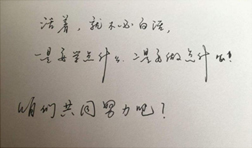 活着，就不必白活，
一是要学点什么，二是要做点什么！
咱们共同努力吧？